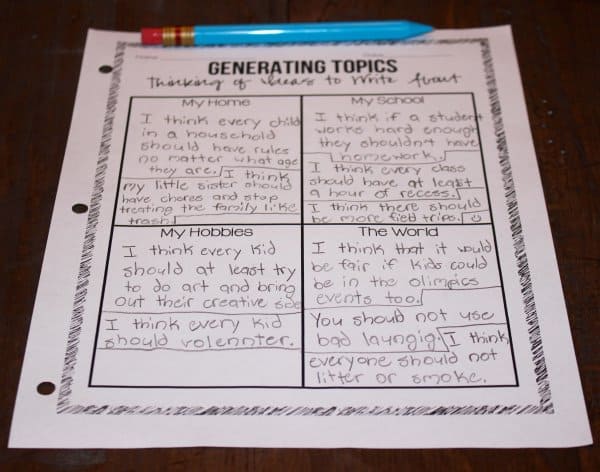 GENERATING TOPICS
Thinking of Ideas to Write About
My Home
I think every child
in a household
should have rules
no matter what age
they are. I think
my little sister should
have chores and stop
treating the family like
trash.
My School
I think if a student
works hard enough
they shouldn't have
homework.
I think every class
should have at least
a hour of recess.
I think there should
be more field trips.
My Hobbies
I think every kid
should at least try
to do art and bring
out their creative side
I think every kid
should volennter.
The World
I think that it would
be fair if kids could
be in the olimpics
events too.
You should not use
bad laungig. I think
everyone should not
litter or smoke.